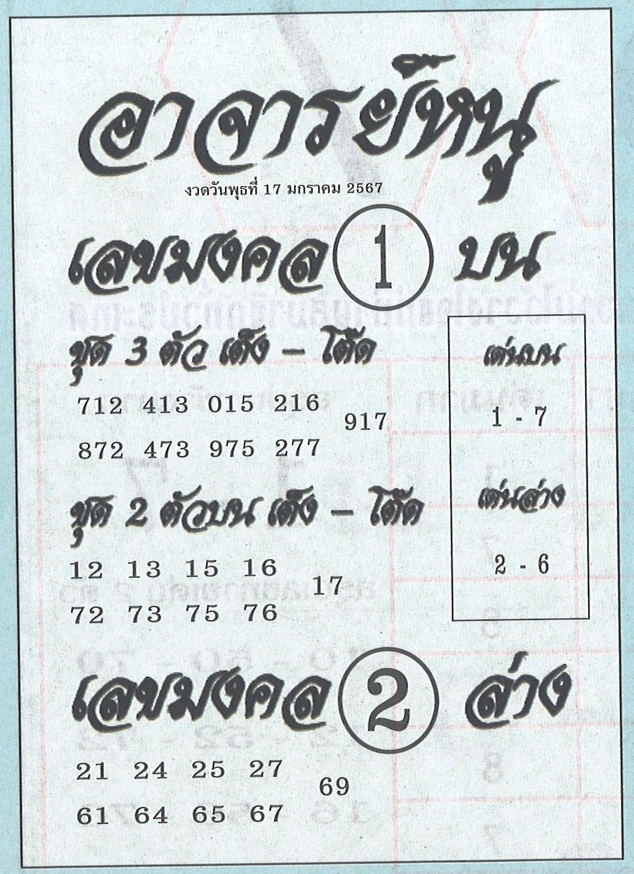 อาจารย์หนู
งวดวันพุธที่ 17 มกราคม 2567
เลขมงคล 1 บน
ชุด 3 ตัว เต็ง - โต๊ด
712 413 015 216
917
872 473 975 277
เด่นบน
1 - 7
เด่นล่าง
2 - 6
ชุด 2 ตัวบน เต็ง - โต๊ด
12 13 15 16
17
72 73 75 76
เลขมงคล 2 ล่าง
21 24 25 27
69
61 64 65 67